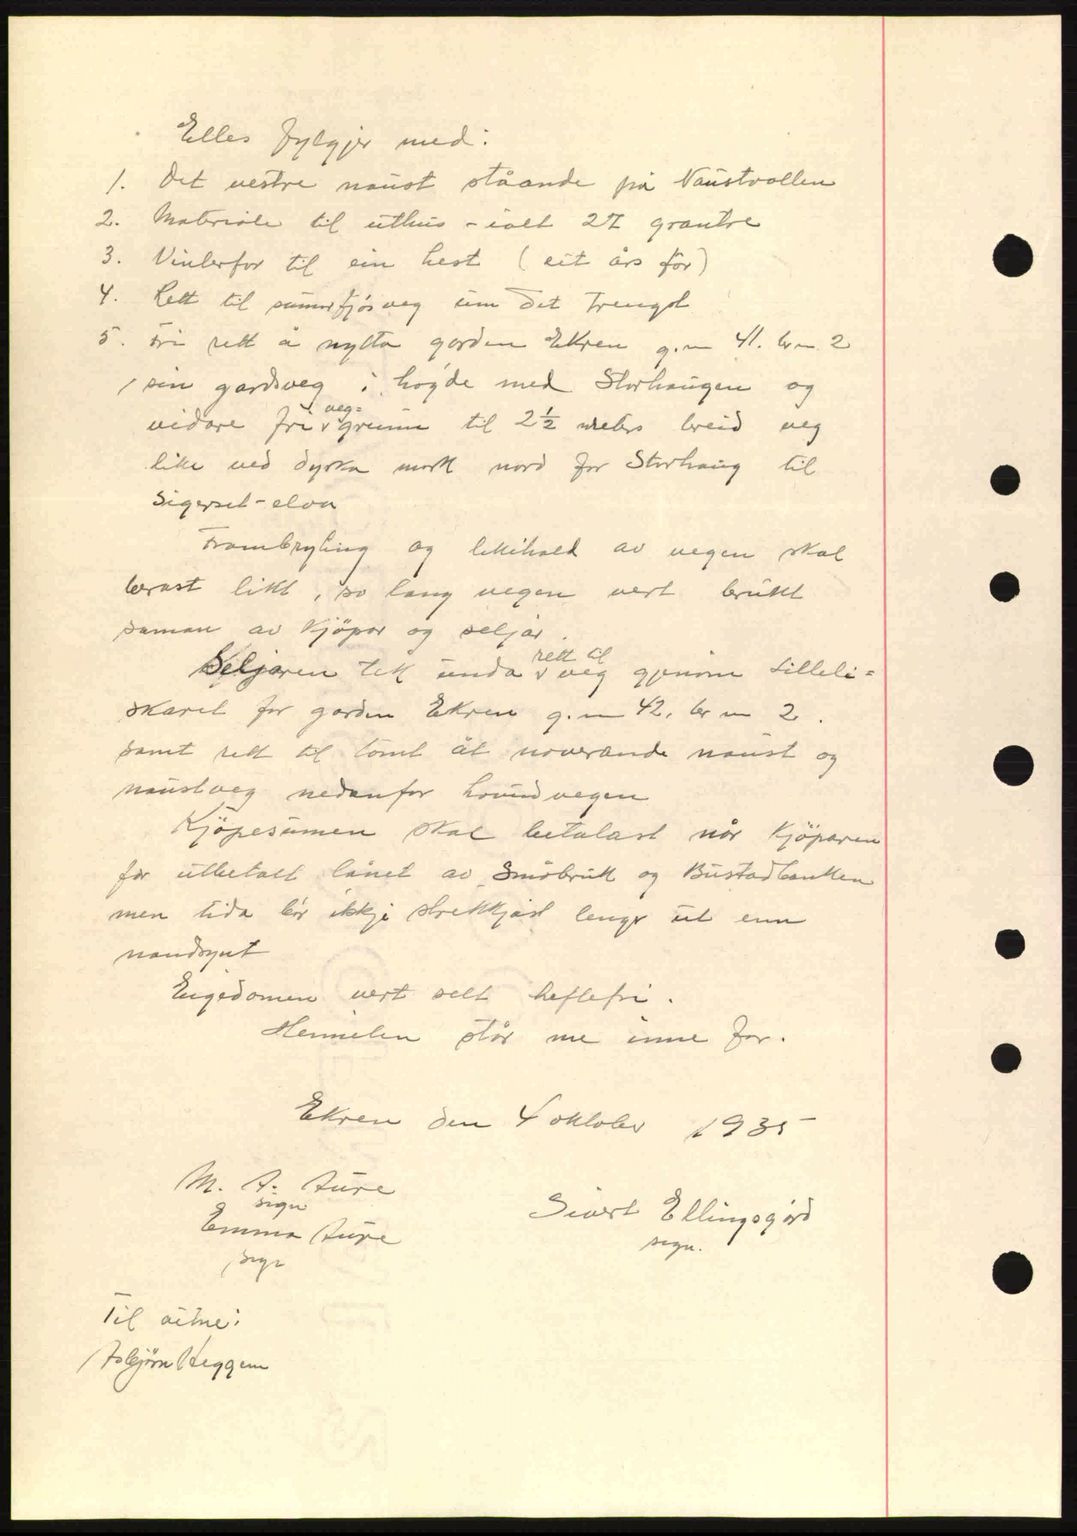 Elles fylgjer med:
1. Det vestre naust ståande på Naustvollen
2. Materiale til uthus - ialt 27 grantre
3. Vinterfor til ein hest (eit års fôr)
4. Rett til sumarfjösveg um det trengst
5. Fri rett å nytta garden Ekren g.n 41. br n 2
sin gardsveg i høgde med Storhaugen og
vidare fri veg= grunn til 2½ meters breid veg
like ved dyrka mark nord for Storhaug til
Sigerset-elva
Frambryting og vedlikehald av vegen skal
berast likt, so lang vegen vert brukt
saman av kjöpar og seljar.
Seljaren tek unda rett til veg gjenom Lilleli=
skaret for garden Ekren g.n 42, br n 2.
samt rett til tomt åt noverande naust og
naustveg nedanfor hovudvegen
Kjöpesumen skal betalast når kjöparen
får utbetalt lånet av Småbruk og Bustadbanken
men tida bør ikkje strekkjast lenger ut enn
naudsynt
Eigedomen vert selt heftefri.
Hermelen står me inne for.
Ekren den 4 oktober 1935
M. A. Aure
sign
Emma Aure
sign
Sivert Ellingsgård
sign.
Til vitne:
Asbjørn Heggem